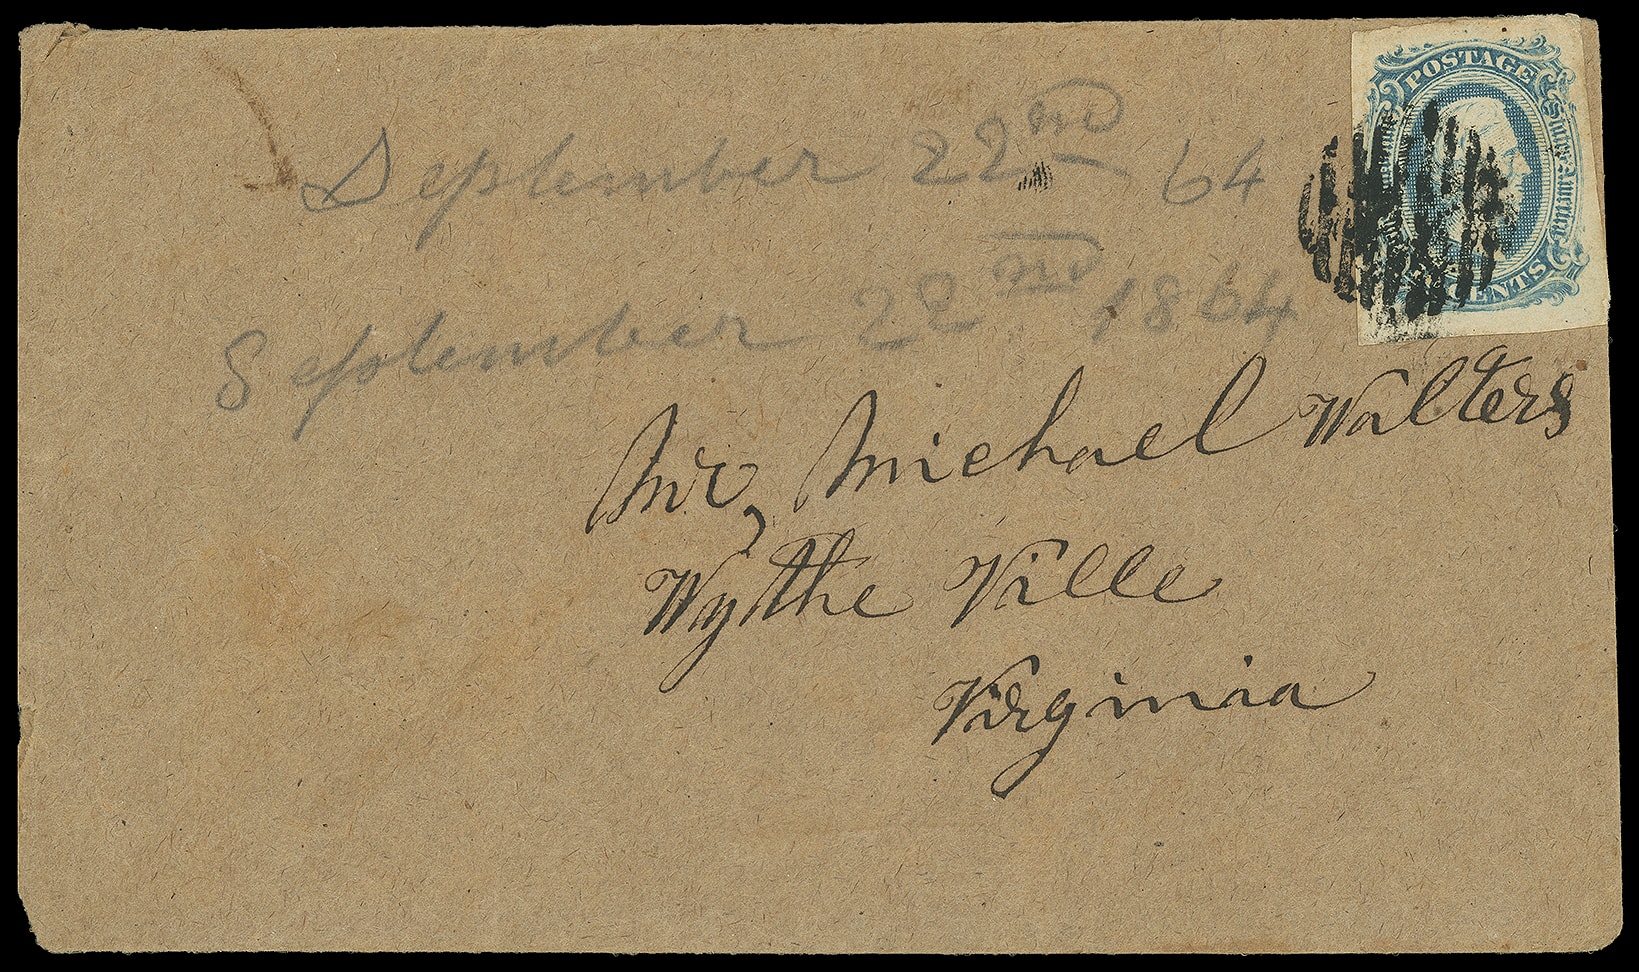 POSTAGE
CENTS
September 22nd 64
September 22nd 1864
Mr, Michael Walters
Wythe Ville
Virginia